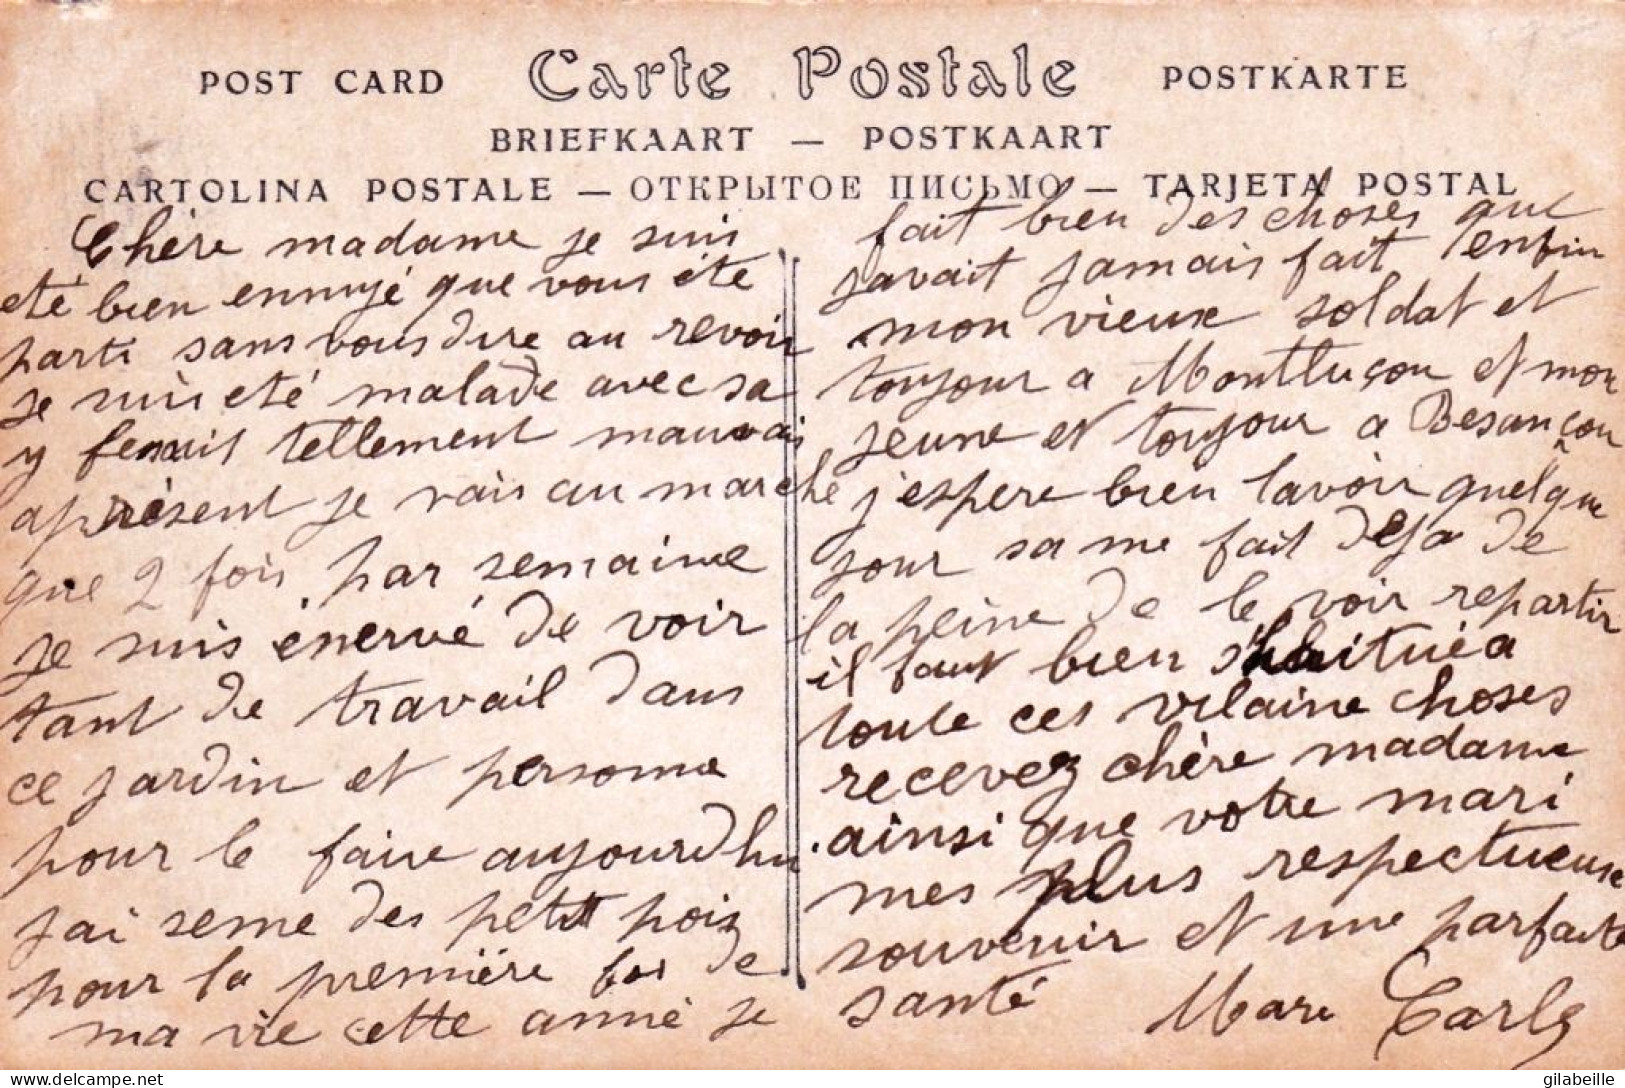 POST CARD Carte Postale POSTKARTE
BRIEFKAART — POSTKAART
CARTOLINA POSTALE — ОТКРЫТОЕ ПИСЬМО — TARJETA POSTAL
Chère madame je suis
eté bien ennuyé que vous éte
parti sans vous dire au revoir
je suis eté malade avec sa
y fesait tellement mauvais
apresent je vais au marche
que 2 fois par semaine
je suis énervé de voir
tant de travail dans
ce jardin et personne
pour le faire aujourdhu
jai seme des petit pois
pour la première fois de
ma vie cette anné je
fait bien des choses que
javait jamais fait enfin
mon vieux soldat et
toujour a Montluçon et mon
jeune et toujour a Besançon
j'espere bien lavoir quelque
jour sa me fait deja de
la peine de le voir repartir
il faut bien s'habitué a
toute ces vilaine choses
recevez chère madame
ainsi que votre mari
mes plus respectueuse
souvenir et une parfaite
santé Marie
gilabeille